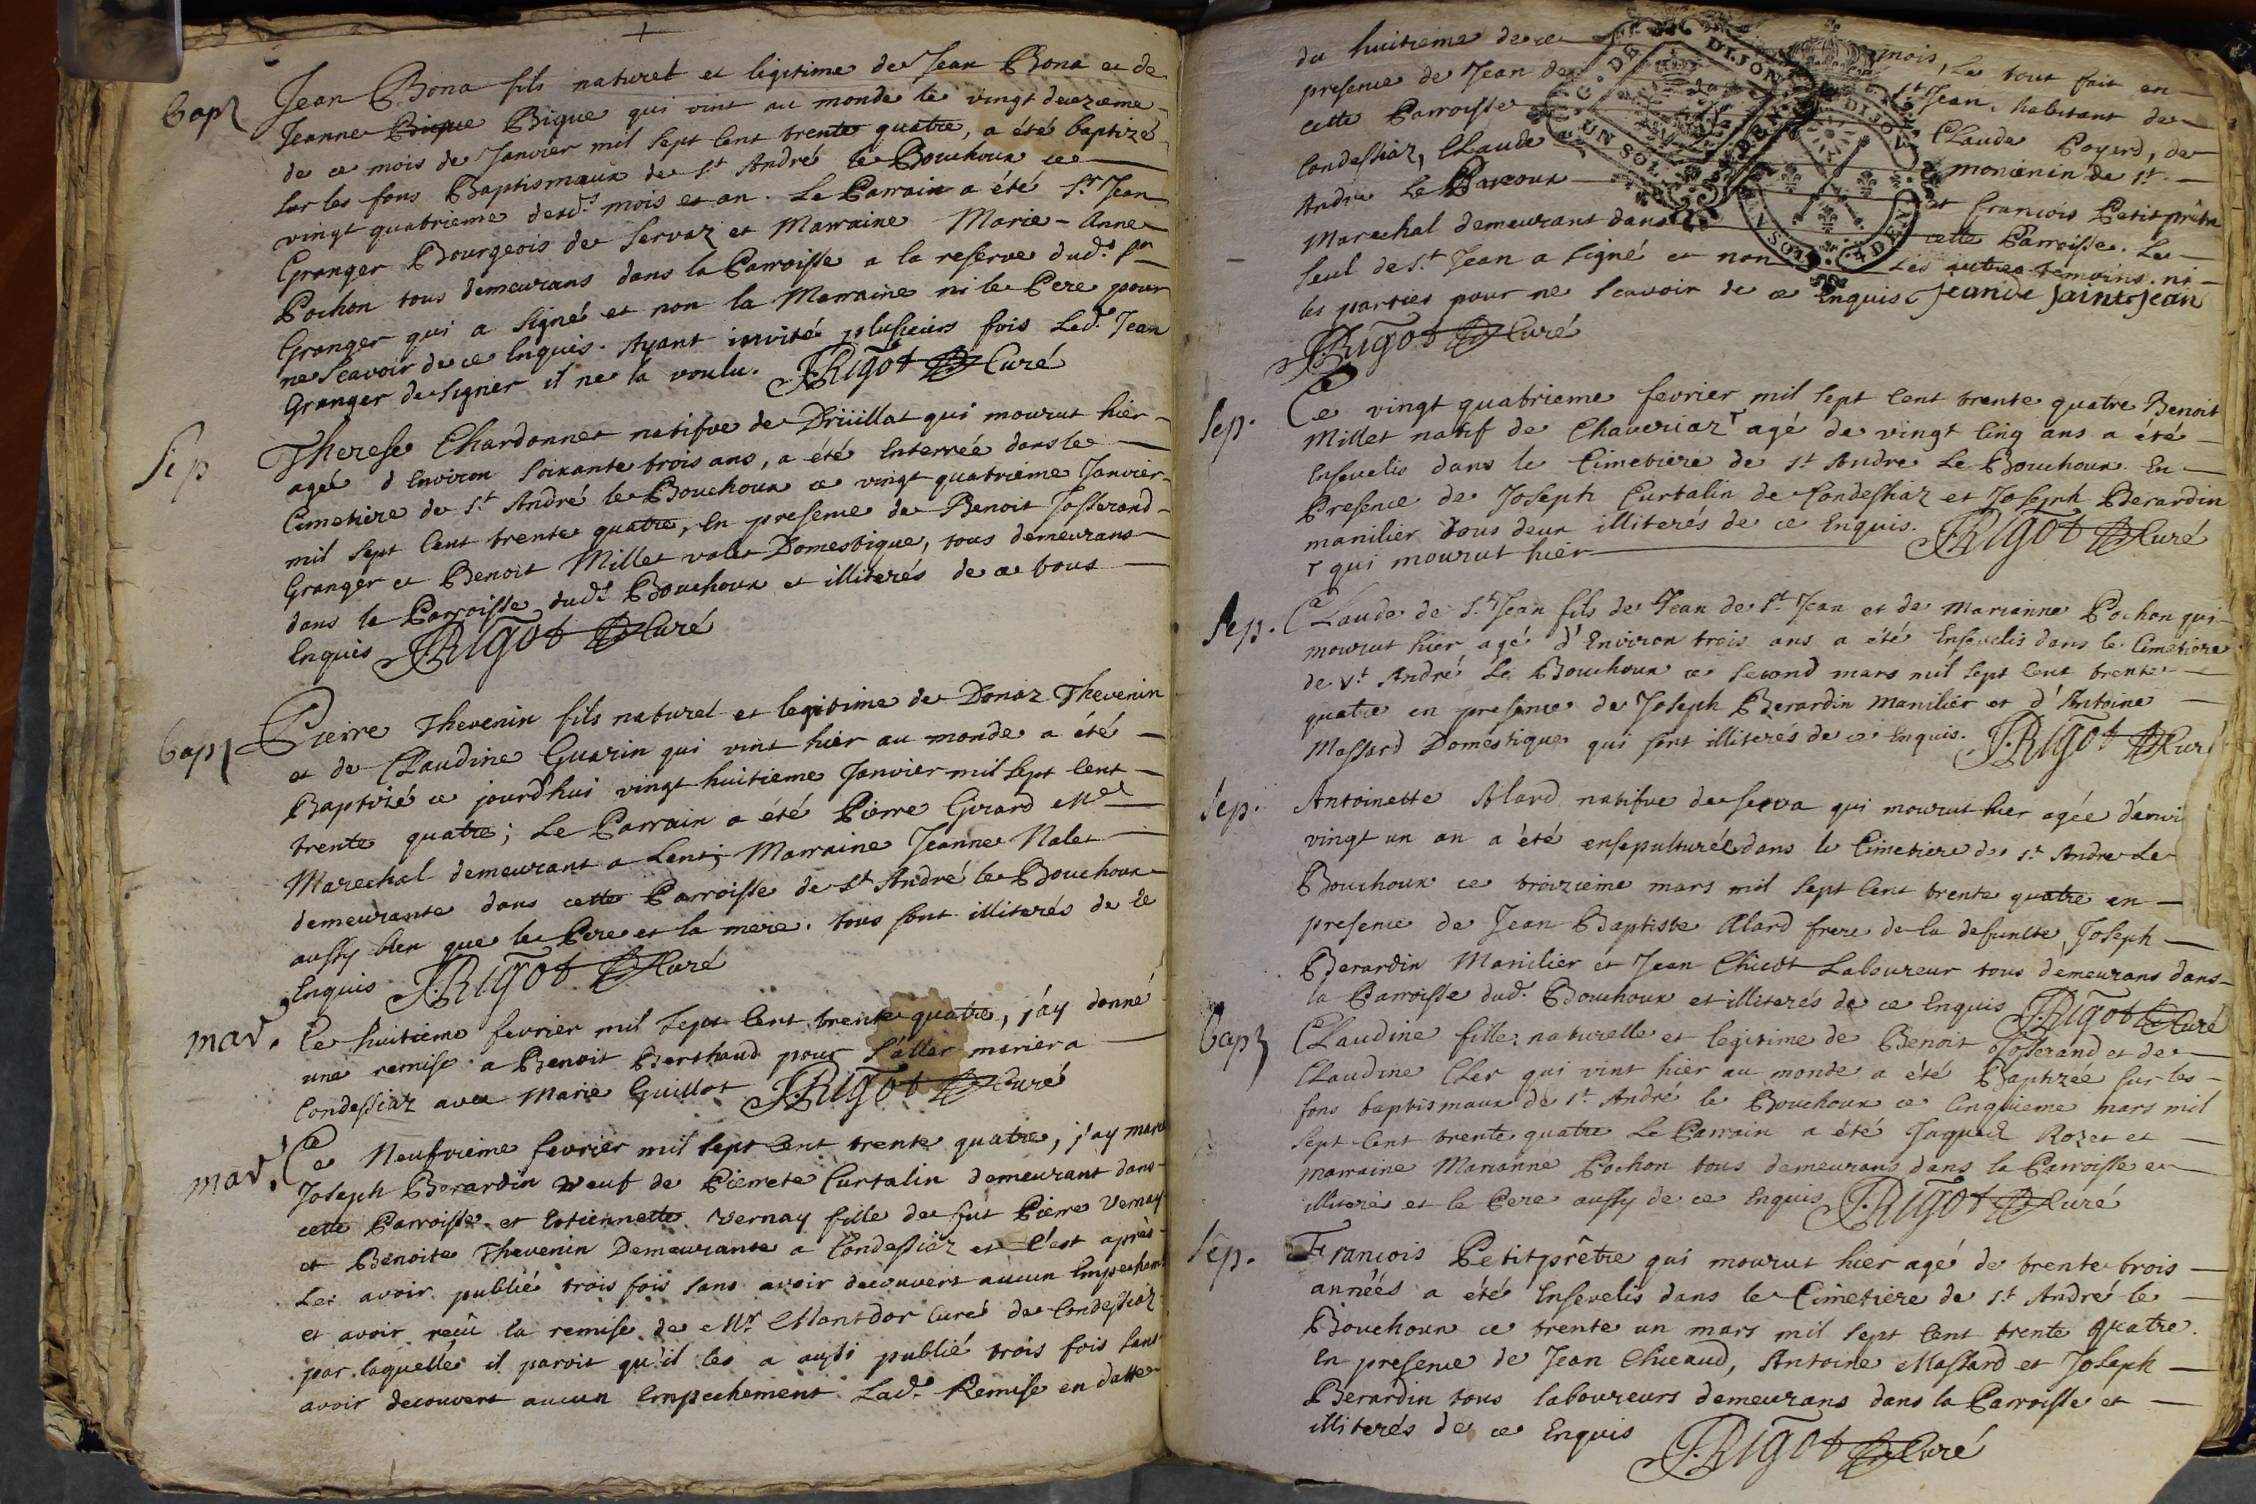 Bapt Jean Bona fils naturel et legitime de Jean Bona et de
Jeanne Bique qui vint au monde le vingt deuzieme
de ce mois de Janvier mil sept cent trente quatre, a été baptizé
sur les fons Baptismaux de St André le Bouchoux ce
vingt quatrieme desd.s mois et an. Le Parrain a été Sr Jean
Granger Bourgeois de Servaz et Marraine Marie-Anne
Pochon tous demeurans dans la Parroisse a la reserve dud.t Sr
Granger qui a signé et non la Marraine ni le Pere pour
ne scavoir de ce Enquis. Ayant invité plusieurs fois Led.t Jean
Granger de signer il ne la voulu. JRigot Curé
Sep Therese Chardonnet natifve de Drüillat qui mourut hier
agée d'Environ soixante trois ans, a été Enterrée dans le
Cimetiere de St André le Bouchoux ce vingt quatrieme Janvier
mil sept Cent trente quatre, En presence de Benoit Josserand
Granger et Benoit Millet valet Domestique, tous demeurans
dans la Parroisse dud.t Bouchoux et illiterés de ce tous
Enquis JRigot Curé
Bapt Pierre Thevenin fils naturel et legitime de Donaz Thevenin
et de Claudine Guerin qui vint hier au monde a été
Baptizé ce jourd'hui vingt huitieme Janvier mil sept Cent
trente quatre; Le Parrain a été Pierre Girard Me
Marechal demeurant a Lent; Marraine Jeanne Nalet
demeurante dans cette Parroisse de St André le Bouchoux
aussy bien que le Pere et la mere. tous sont illiterés de ce
Enquis JRigot Curé
mar. Ce huitieme fevrier mil sept Cent trente quatre, j'ay donné
une remise a Benoit Berthaud pour s'aller marier a
Condessiaz avec Marie Guillot JRigot Curé
mar. Ce Neufvieme fevrier mil sept Cent trente quatre, j'ay marié
Joseph Berardin veuf de Pierrete Curtalin demeurant dans
cette Parroisse et Estiennette Vernay fille de fut Pierre Vernay
et Benoite Thevenin Demeurante a Condessiaz et C'est après
Les avoir publié trois fois sans avoir decouvert aucun Empechem.t
et avoir reçû la remise de Mr Montdor Curé de Condessiaz
par laquelle il paroit qu'il les a aussi publié trois fois sans
avoir decouvert aucun Empechement. Lad.e Remise en datte
du huitieme de ce mois, Le tout fait en
presence de Jean de St Jean, habitant de
cette Parroisse Claude Poyard, de
Condessiaz, Claude monienin de St
Andre Le Panoux et francois Petitprêtre
Marechal demeurant dans cette Parroisse. Le
seul de St Jean a signé et non Les autres temoins ni
les parties pour ne scavoir de ce Enquis Jean de Saint Jean
JRigot Curé
Sep. Ce vingt quatrieme fevrier mil sept Cent trente quatre Benoit
Millet natif de Chaveriaz agé de vingt Cinq ans a été
Ensevelis dans le Cimetiere de St Andre Le Bouchoux En
Presence de Joseph Curtalin de Condessiaz et Joseph Berardin
manilier tous deux illiterés de ce Enquis. JRigot Curé
qui mourut hier
Sep. Claude de St Jean fils de Jean de St Jean et de Marianne Pochon qui
mourut hier agé d'Environ trois ans a été Ensevelis dans le Cimetiere
de St André Le Bouchoux ce second mars mil sept Cent trente
quatre en presence de Joseph Berardin Manilier et d'Antoine
Massard Domestique qui sont illiterés de ce Enquis. JRigot Curé
Sep. Antoinette Alard natifve de Serva qui mourut hier agée d'envi
vingt un an a été ensepulturée dans le Cimetiere de St Andre Le
Bouchoux ce troizieme mars mil sept Cent trente quatre en
presence de Jean Baptiste Alard frere de la defuncte, Joseph
Berardin Manilier et Jean Chicot Laboureur tous demeurans dans
la Parroisse dud.t Bouchoux et illiterés de ce Enquis JRigot Curé
Bapt Claudine fille naturelle et legitime de Benoit Josserand et de
Claudine Cler qui vint hier au monde a été Baptizée sur les
fons baptismaux de St André le Bouchoux ce Cinquieme mars mil
sept Cent trente quatre Le Parrain a été Jaques Rozet et
marraine Marianne Pochon tous demeurans dans la Parroisse et
illiterés et le Pere aussy de ce Enquis JRigot Curé
Sep. Francois Petitprêtre qui mourut hier agé de trente trois
années a été Ensevelis dans le Cimetiere de St André le
Bouchoux ce trente un mars mil sept Cent trente quatre.
En presence de Jean Chicaud, Antoine Massard et Joseph
Berardin tous laboureurs demeurans dans la Parroisse et
illiterés de ce Enquis JRigot Curé